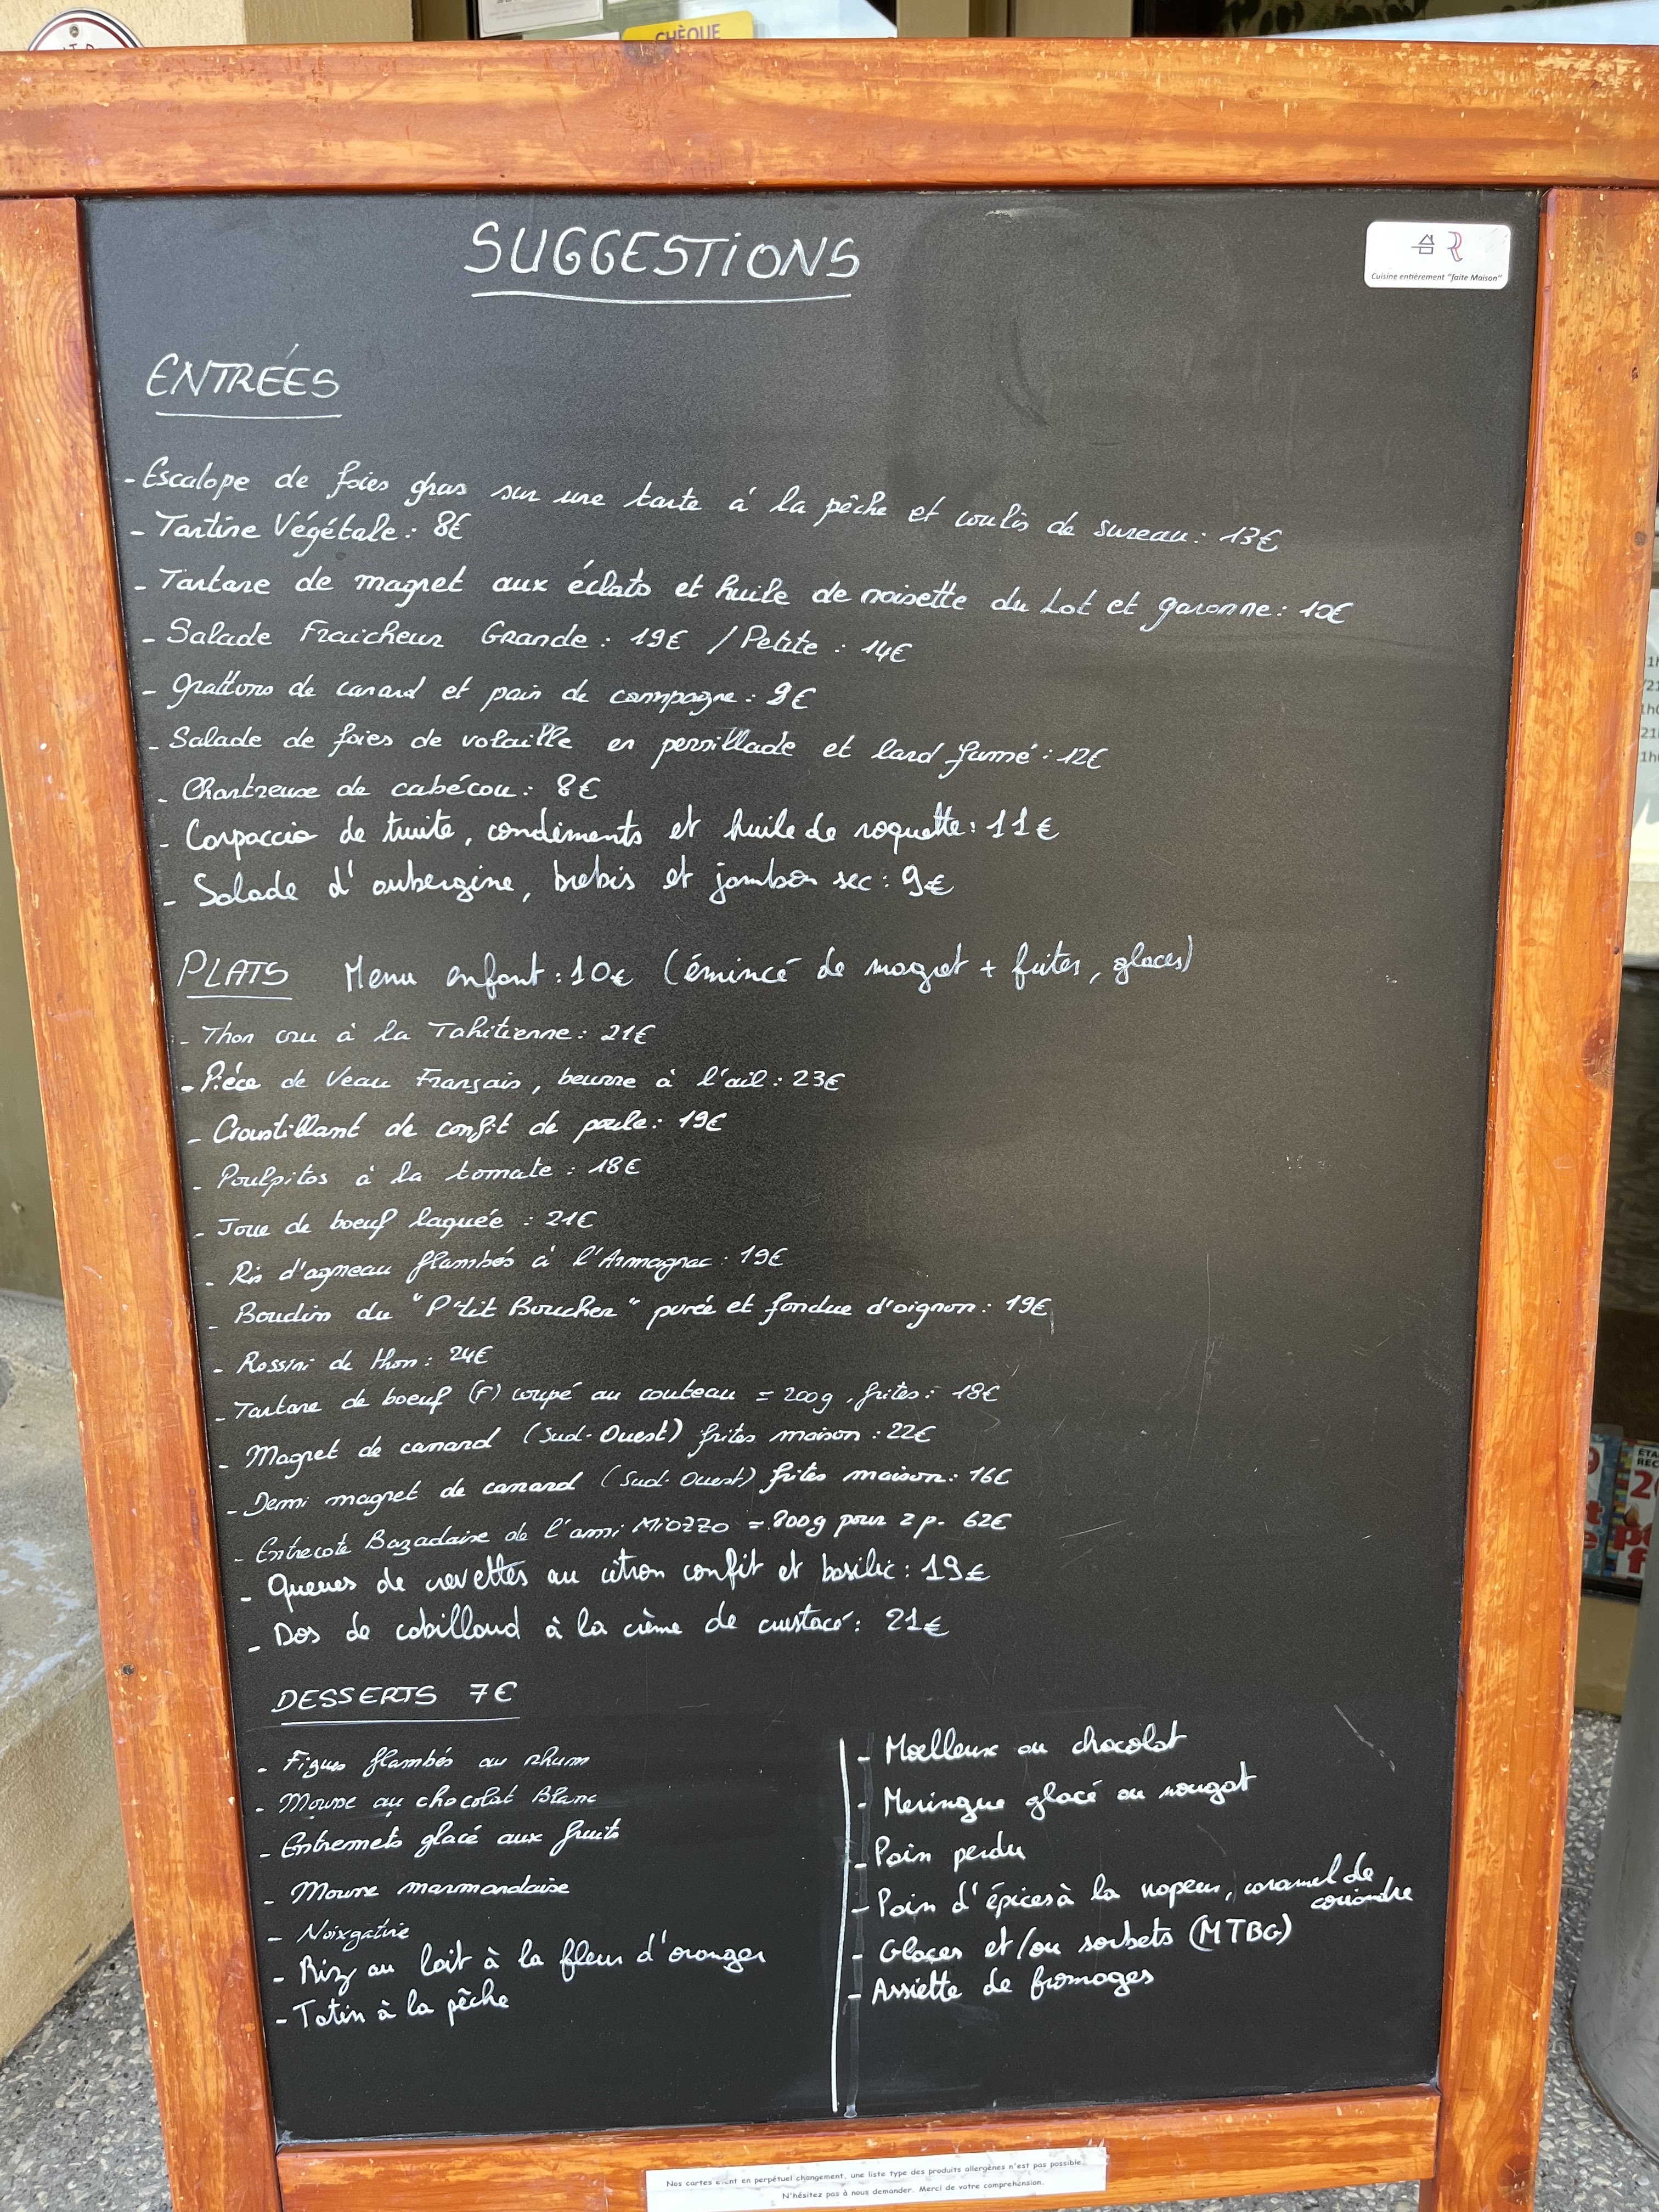 CHÈQUE
SUGGESTIONS
Cuisine entièrement "faite Maison"
ENTRÉES
- Escalope de foies gras sur une tarte à la pêche et coulis de sureau : 13€
- Tartine Végétale : 8€
- Tartare de magret aux éclats et huile de noisette du Lot et garonne : 10€
- Salade Fraîcheur Grande : 19€ / Petite : 14€
- Grattons de canard et pain de campagne : 9€
- Salade de foies de volaille en persillade et lard fumé : 12€
- Chartreuse de cabécou : 8€
- Carpaccio de truite, condiments et huile de roquette : 11€
- Salade d'aubergine, brebis et jambon sec : 9€
PLATS Menu enfant : 10€ (émincé de magret + frites, glaces)
- Thon cru à la Tahitienne : 21€
- Pièce de Veau Français, beurre à l'ail : 23€
- Croustillant de confit de poule : 19€
- Poulpitos à la tomate : 18€
- Joue de boeuf laquée : 21€
- Ris d'agneau flambés à l'Armagnac : 19€
- Boudin du "P'tit Boucher" purée et fondue d'oignon : 19€
- Rossini de thon : 24€
- Tartare de boeuf (F) coupé au couteau = 200g, frites : 18€
- Magret de canard (Sud-Ouest) frites maison : 22€
- Demi magret de canard (Sud-Ouest) frites maison : 16€
- Entrecote Bazadaise de l'ami Miozzo = 800g pour 2 p. 62€
- Queues de crevettes au citron confit et basilic : 19€
- Dos de cabillaud à la crème de crustacé : 21€
DESSERTS 7€
- Figues flambés au rhum
- Mousse au chocolat Blanc
- Entremets glacé aux fruits
- Mousse marmandaise
- Noixgatine
- Riz au lait à la fleur d'oranger
- Tatin à la pêche
- Moelleux au chocolat
- Meringue glacé au nougat
- Pain perdu
- Pain d'épices à la vapeur, caramel de
coriandre
- Glaces et/ou sorbets (MTBG)
- Assiette de fromages
Nos cartes étant en perpétuel changement, une liste type des produits allergènes n'est pas possible.
N'hésitez pas à nous demander. Merci de votre compréhension.